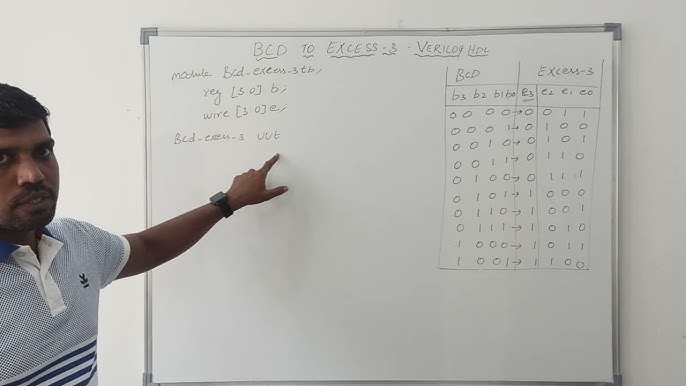 BCD TO EXCESS-3 - VERILOG HDL
module Bcd-excess-3tb;
reg [3:0] b;
wire [3:0] e;
Bcd-exess-3 UUt
BCD EXCESS-3
b3 b2 b1 b0 e3 e2 e1 e0
0 0 0 0 → 0 0 1 1
0 0 0 1 → 0 1 0 0
0 0 1 0 → 0 1 0 1
0 0 1 1 → 0 1 1 0
0 1 0 0 → 0 1 1 1
0 1 0 1 → 1 0 0 0
0 1 1 0 → 1 0 0 1
0 1 1 1 → 1 0 1 0
1 0 0 0 → 1 0 1 1
1 0 0 1 → 1 1 0 0